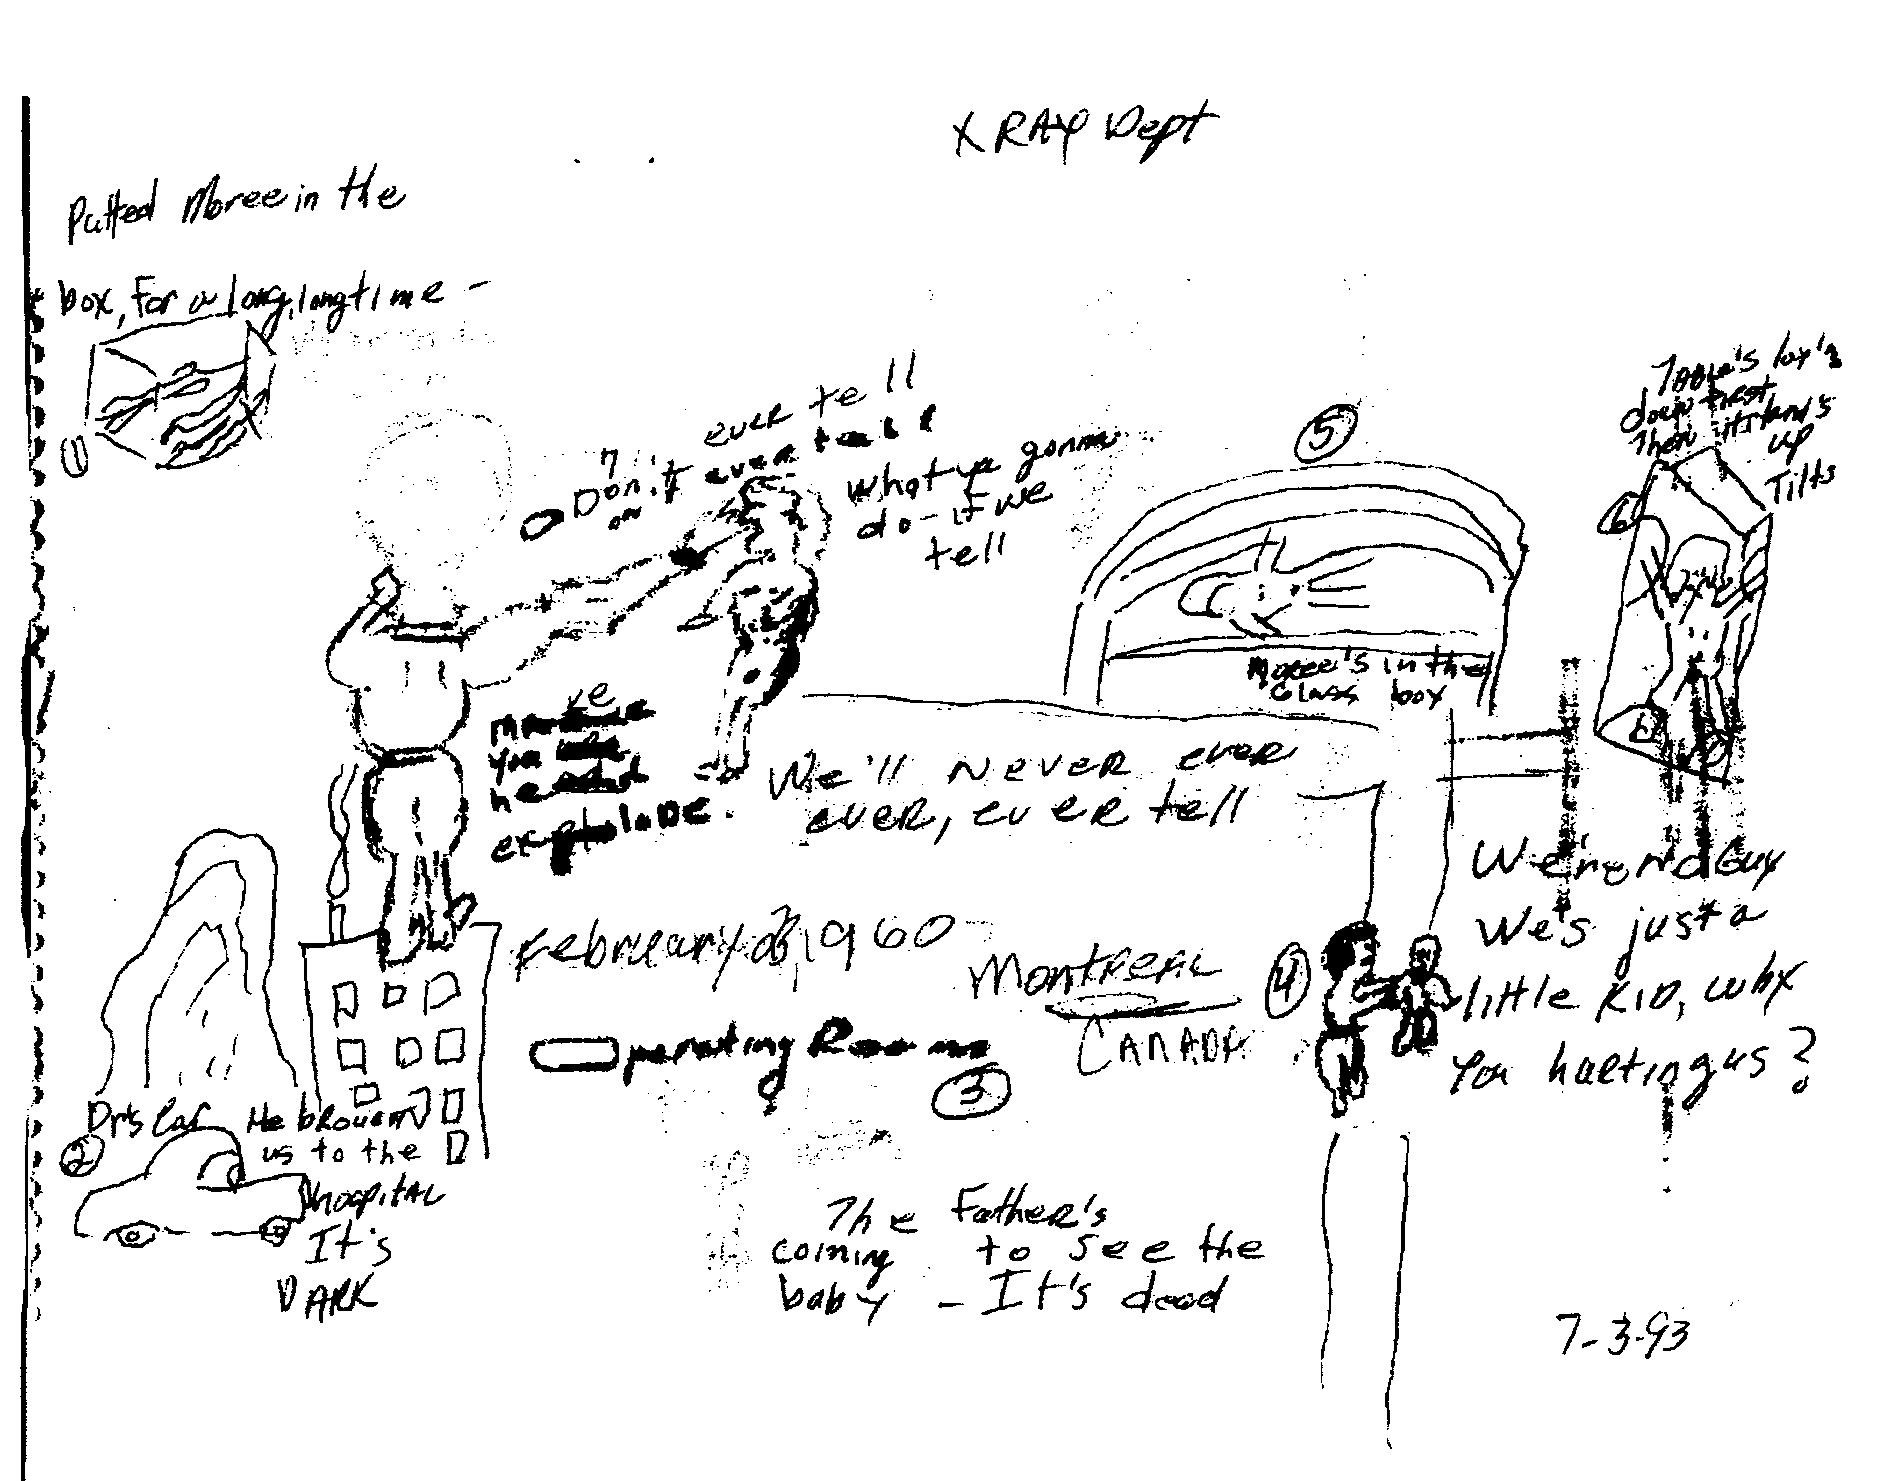 X RAY Dept
Putted Moree in the
box, for a long, long time -
Table's lay's
down first
Then it stand's
up
Tilts
ever tell
Don't ever tell
what ya gonna
do - if we
tell
5
6
Moree's in the
Glass box
make
you
head
explode.
We'll never ever
ever, ever tell
We'r no Guy
We's just a
little kid, why
you hurting us?
February 1960
Montreal
Canada
4
Operating Room
3
Dr's Car
2
He brought
us to the
hospital
It's
DARK
The Father's
coming to see the
baby - It's dead
7-3-93